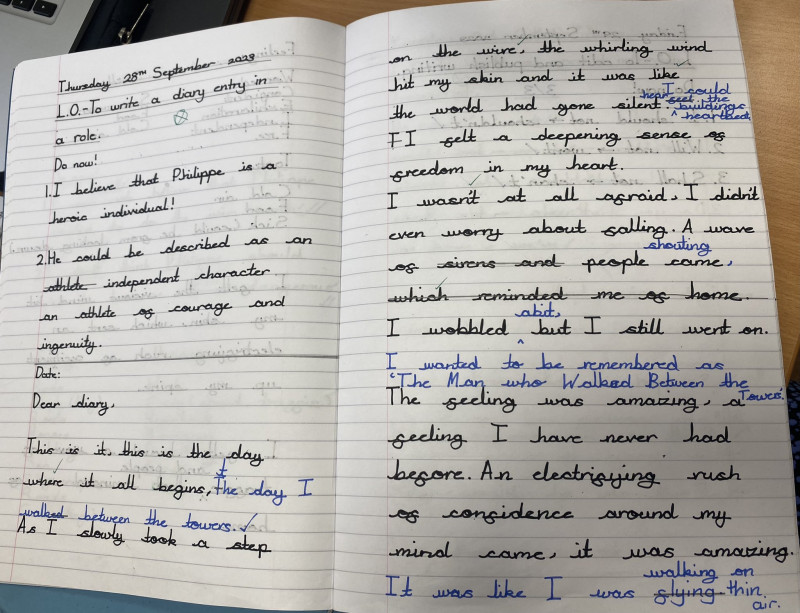 Thursday 28TH September 2023
L.O.-To write a diary entry in
a role.
Do now!
1.I believe that Philippe is a
heroic individual!
2.He could be described as an
athlete independent character
an athlete of courage and
ingenuity.
Date:
Dear diary,
This is it, this is the day
where it all begins, the day I
walked between the towers.
As I slowly took a step
on the wire, the whirling wind
hit my skin and it was like
the world had gone silent hear I could
feel the buildings heartbeat
I felt a deepening sense of
freedom in my heart.
I wasn't at all afraid, I didn't
even worry about falling. A wave
shouting
of sirens and people came,
which reminded me of home.
abit,
I wobbled but I still went on.
I wanted to be remembered as
"The Man who Walked Between the
Towers.
The feeling was amazing, a
feeling I have never had
before. An electrifying rush
of confidence around my
mind came, it was amazing.
walking on
It was like I was flying thin
air.